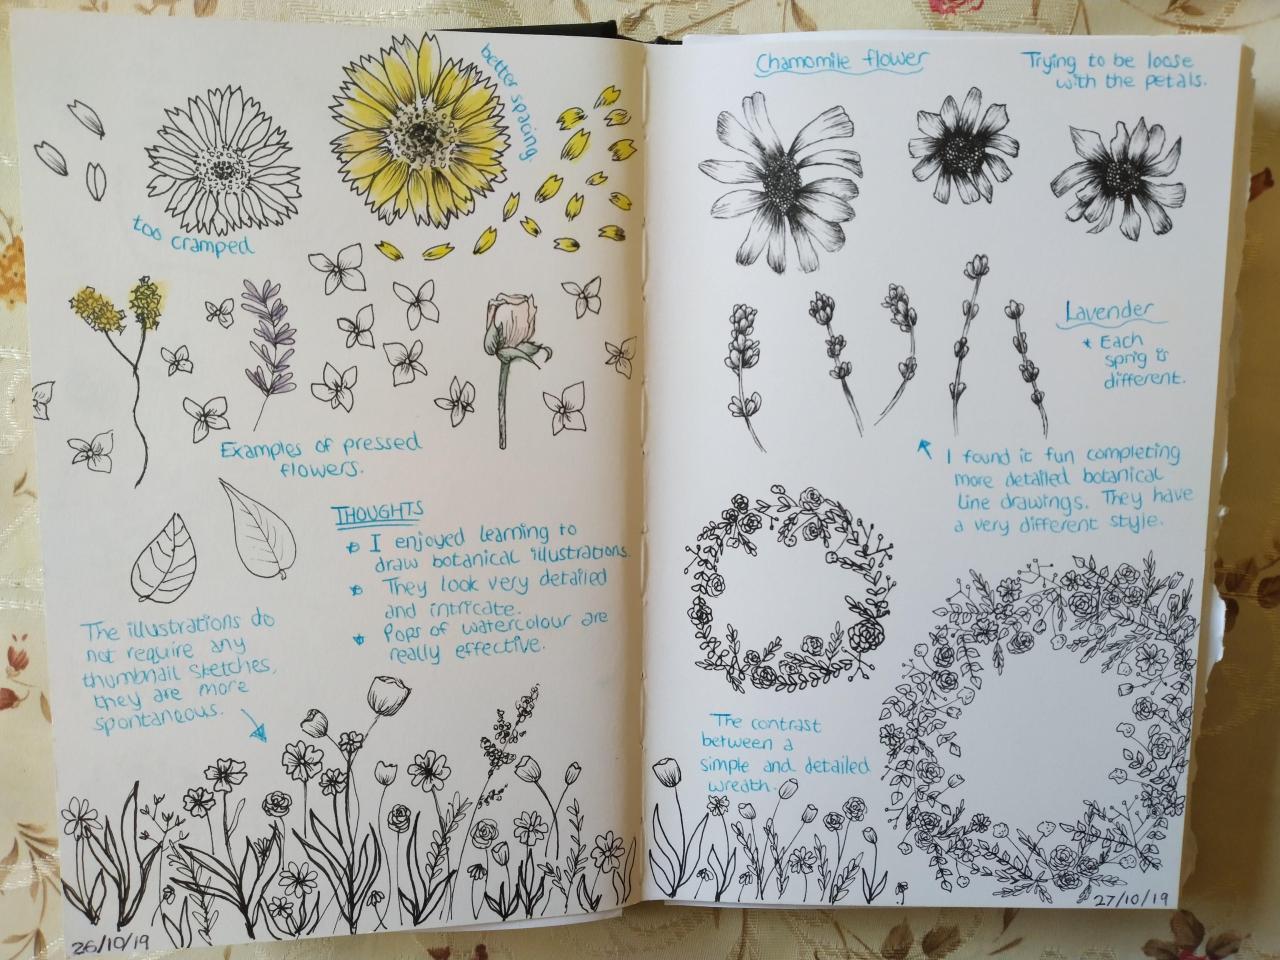 better spacing
too cramped
Examples of pressed
flowers.
THOUGHTS
I enjoyed learning to
draw botanical illustrations.
They look very detailed
and intricate.
Pops of watercolour are
really effective.
The illustrations do
not require any
thumbnail sketches,
they are more
spontaneous.
26/10/19
Chamomile flower
Trying to be loose
with the petals.
Lavender
* Each
sprig is
different.
I found it fun completing
more detailed botanical
line drawings. They have
a very different style.
The contrast
between a
simple and detailed
wreath.
27/10/19